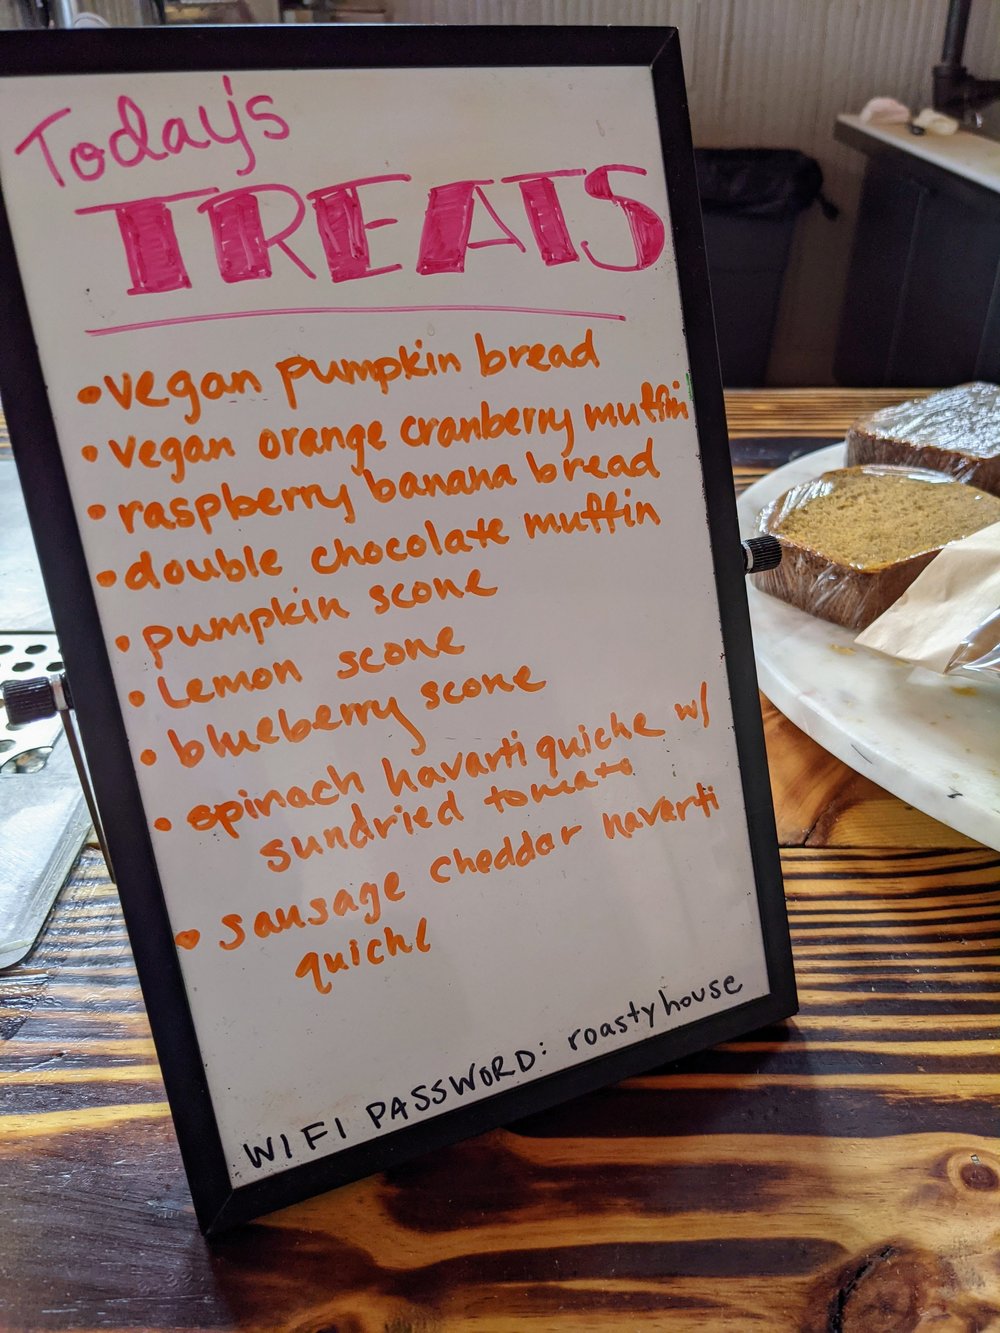 Today's
TREATS
• vegan pumpkin bread
• vegan orange cranberry muffin
• raspberry banana bread
• double chocolate muffin
• pumpkin scone
• lemon scone
• blueberry scone
• spinach havarti quiche w/
sundried tomato
• sausage cheddar havarti
quiche
WIFI PASSWORD: roastyhouse